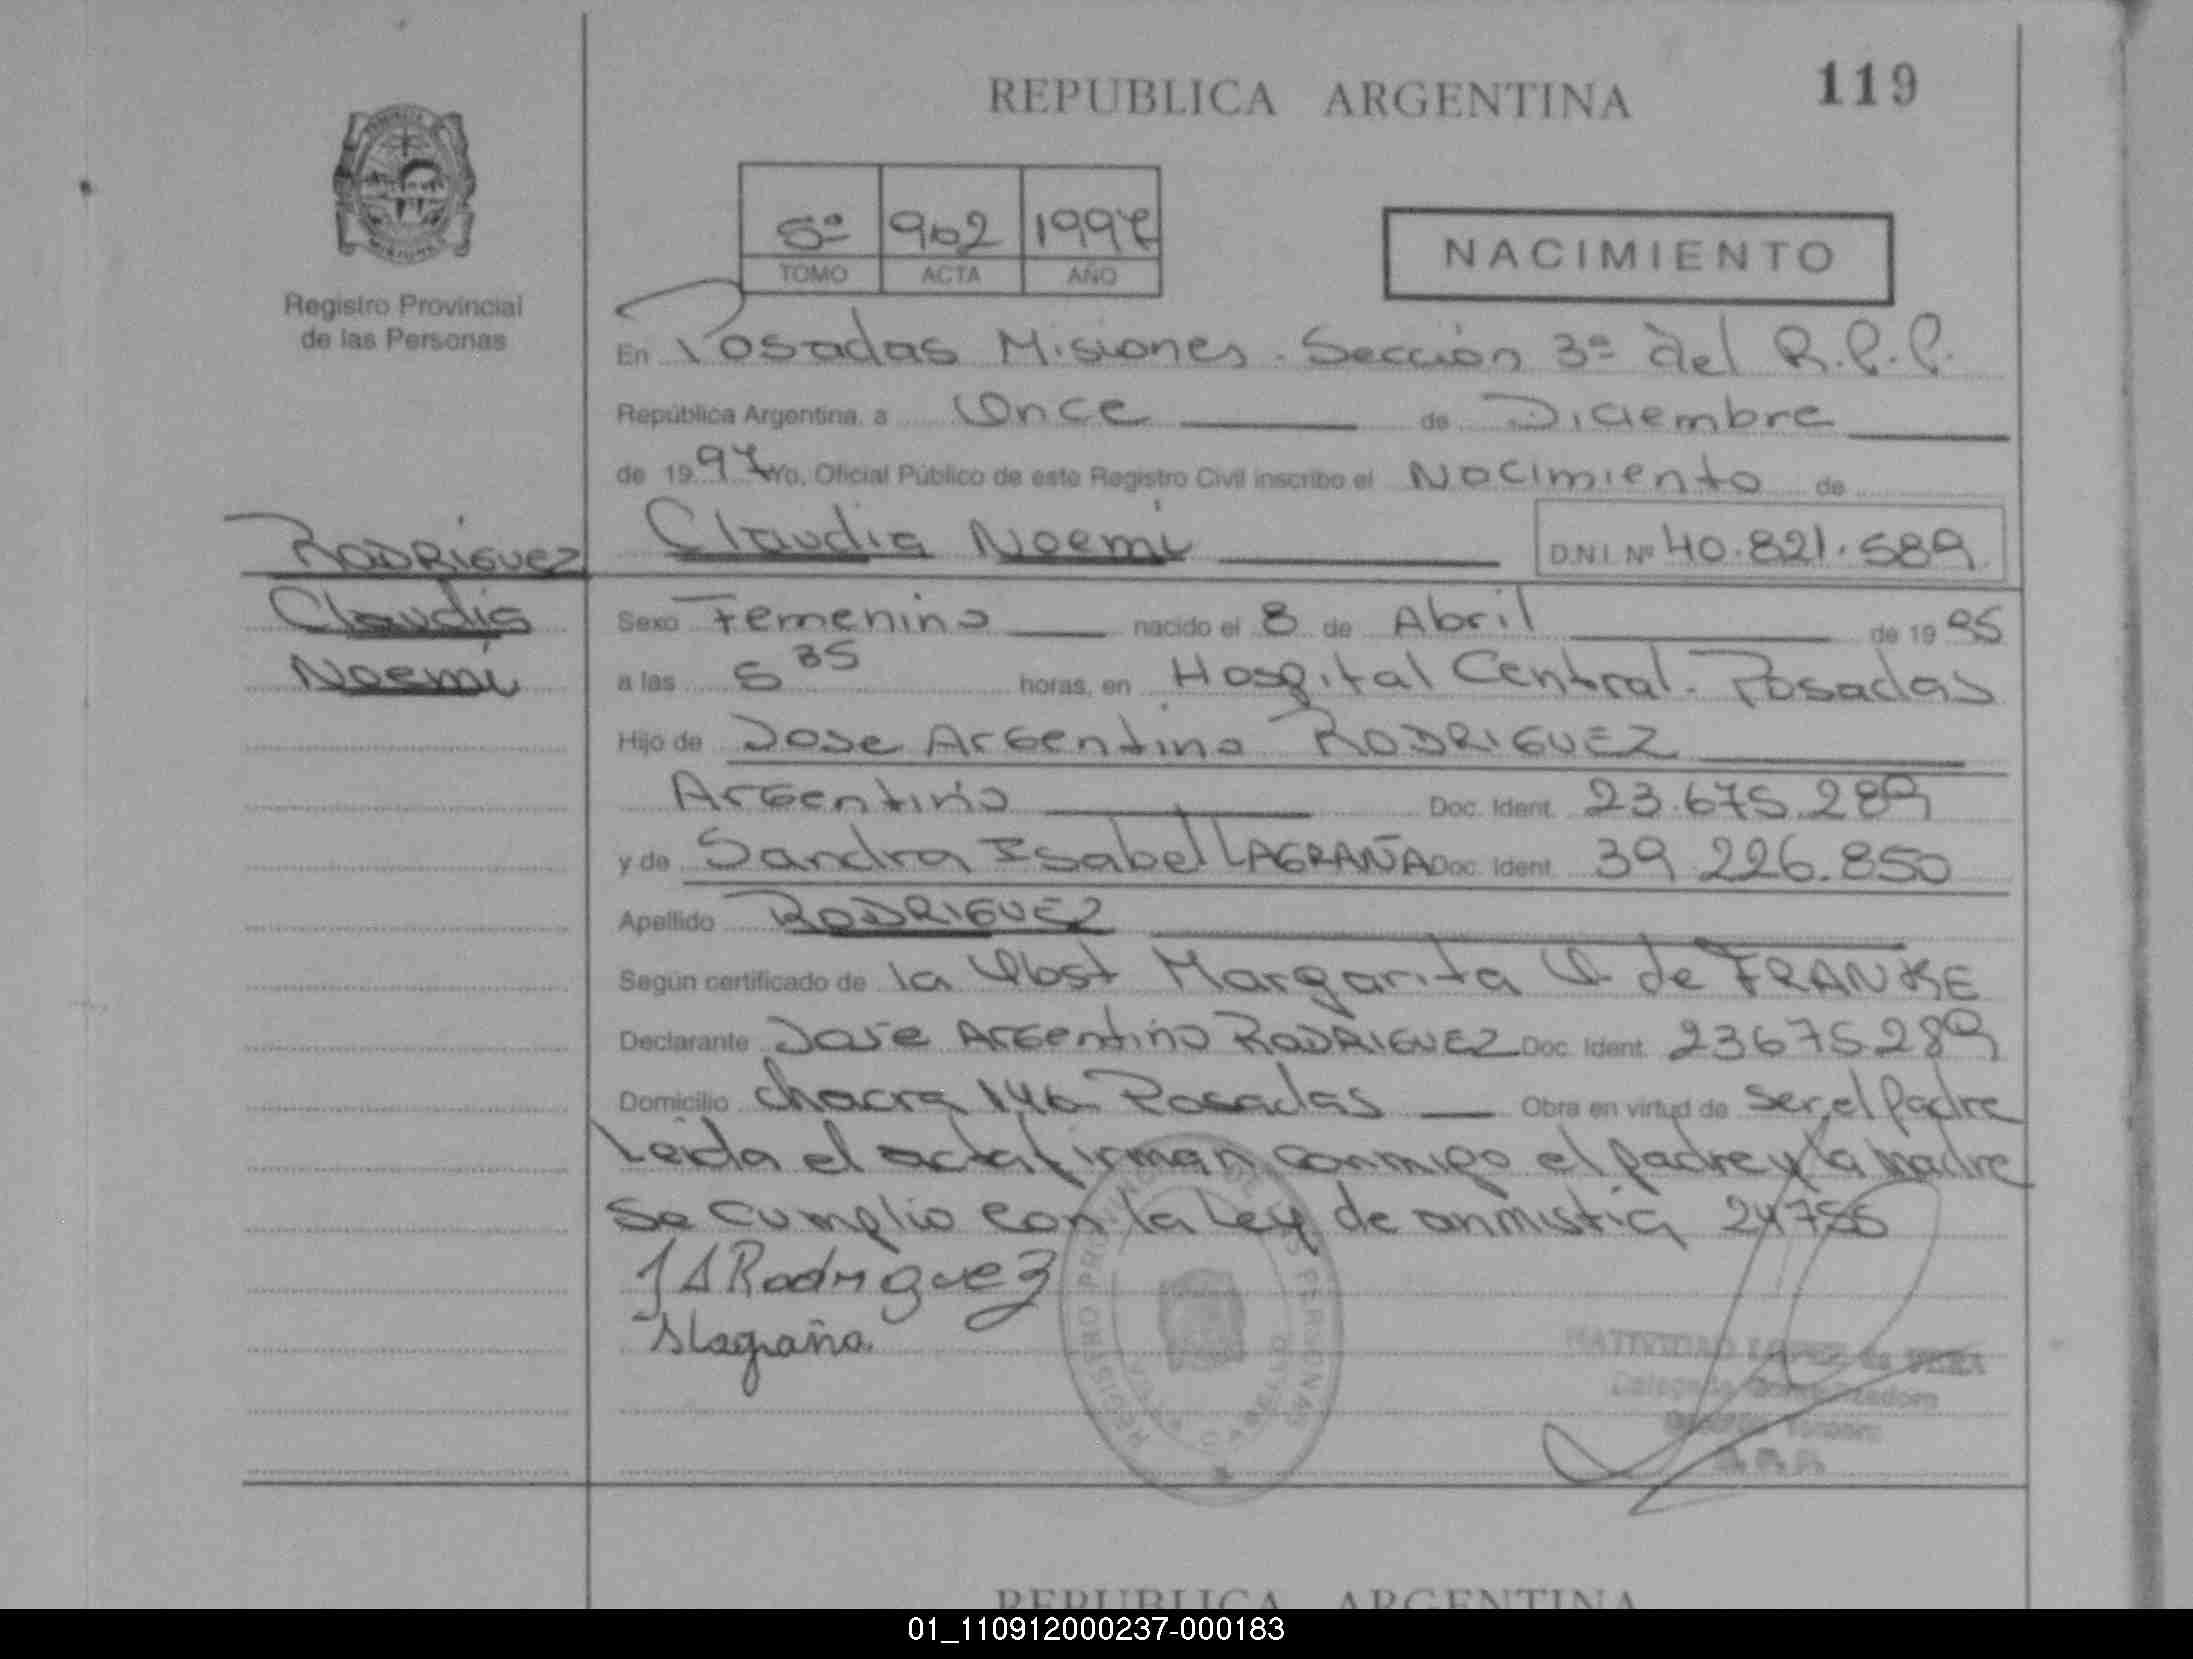 REPUBLICA ARGENTINA
119
5º 902 1997
TOMO ACTA AÑO
NACIMIENTO
Registro Provincial
de las Personas
En Posadas Misiones. Sección 3ª del R.P.P.
República Argentina, a Once de Diciembre
de 1997 Yo, Oficial Público de este Registro Civil inscribo el Nacimiento de
RODRIGUEZ
Claudia
Noemi
Claudia Noemi D.N.I. Nº 40.821.589
Sexo Femenino nacido el 8 de Abril de 1995
a las 5 35 horas, en Hospital Central. Posadas
Hijo de Jose Argentino RODRIGUEZ
Argentino Doc. Ident. 23.675.289
y de Sandra Isabel LAGRAÑA Doc. Ident. 39.226.850
Apellido RODRIGUEZ
Según certificado de la Obst Margarita O. de FRANKE
Declarante Jose Argentino RODRIGUEZ Doc. Ident. 23675289
Domicilio chacra 146 Posadas Obra en virtud de ser el padre
Leida el acta firman conmigo el padre y la madre
Se cumplio con la Ley de anmistia 24755
J A Rodriguez
S Lagraña.
REGISTRO PROVINCIAL DE LAS PERSONAS
NATIVIDAD LOPEZ de VERA
R.P.P.
REPUBLICA ARGENTINA
01_110912000237-000183